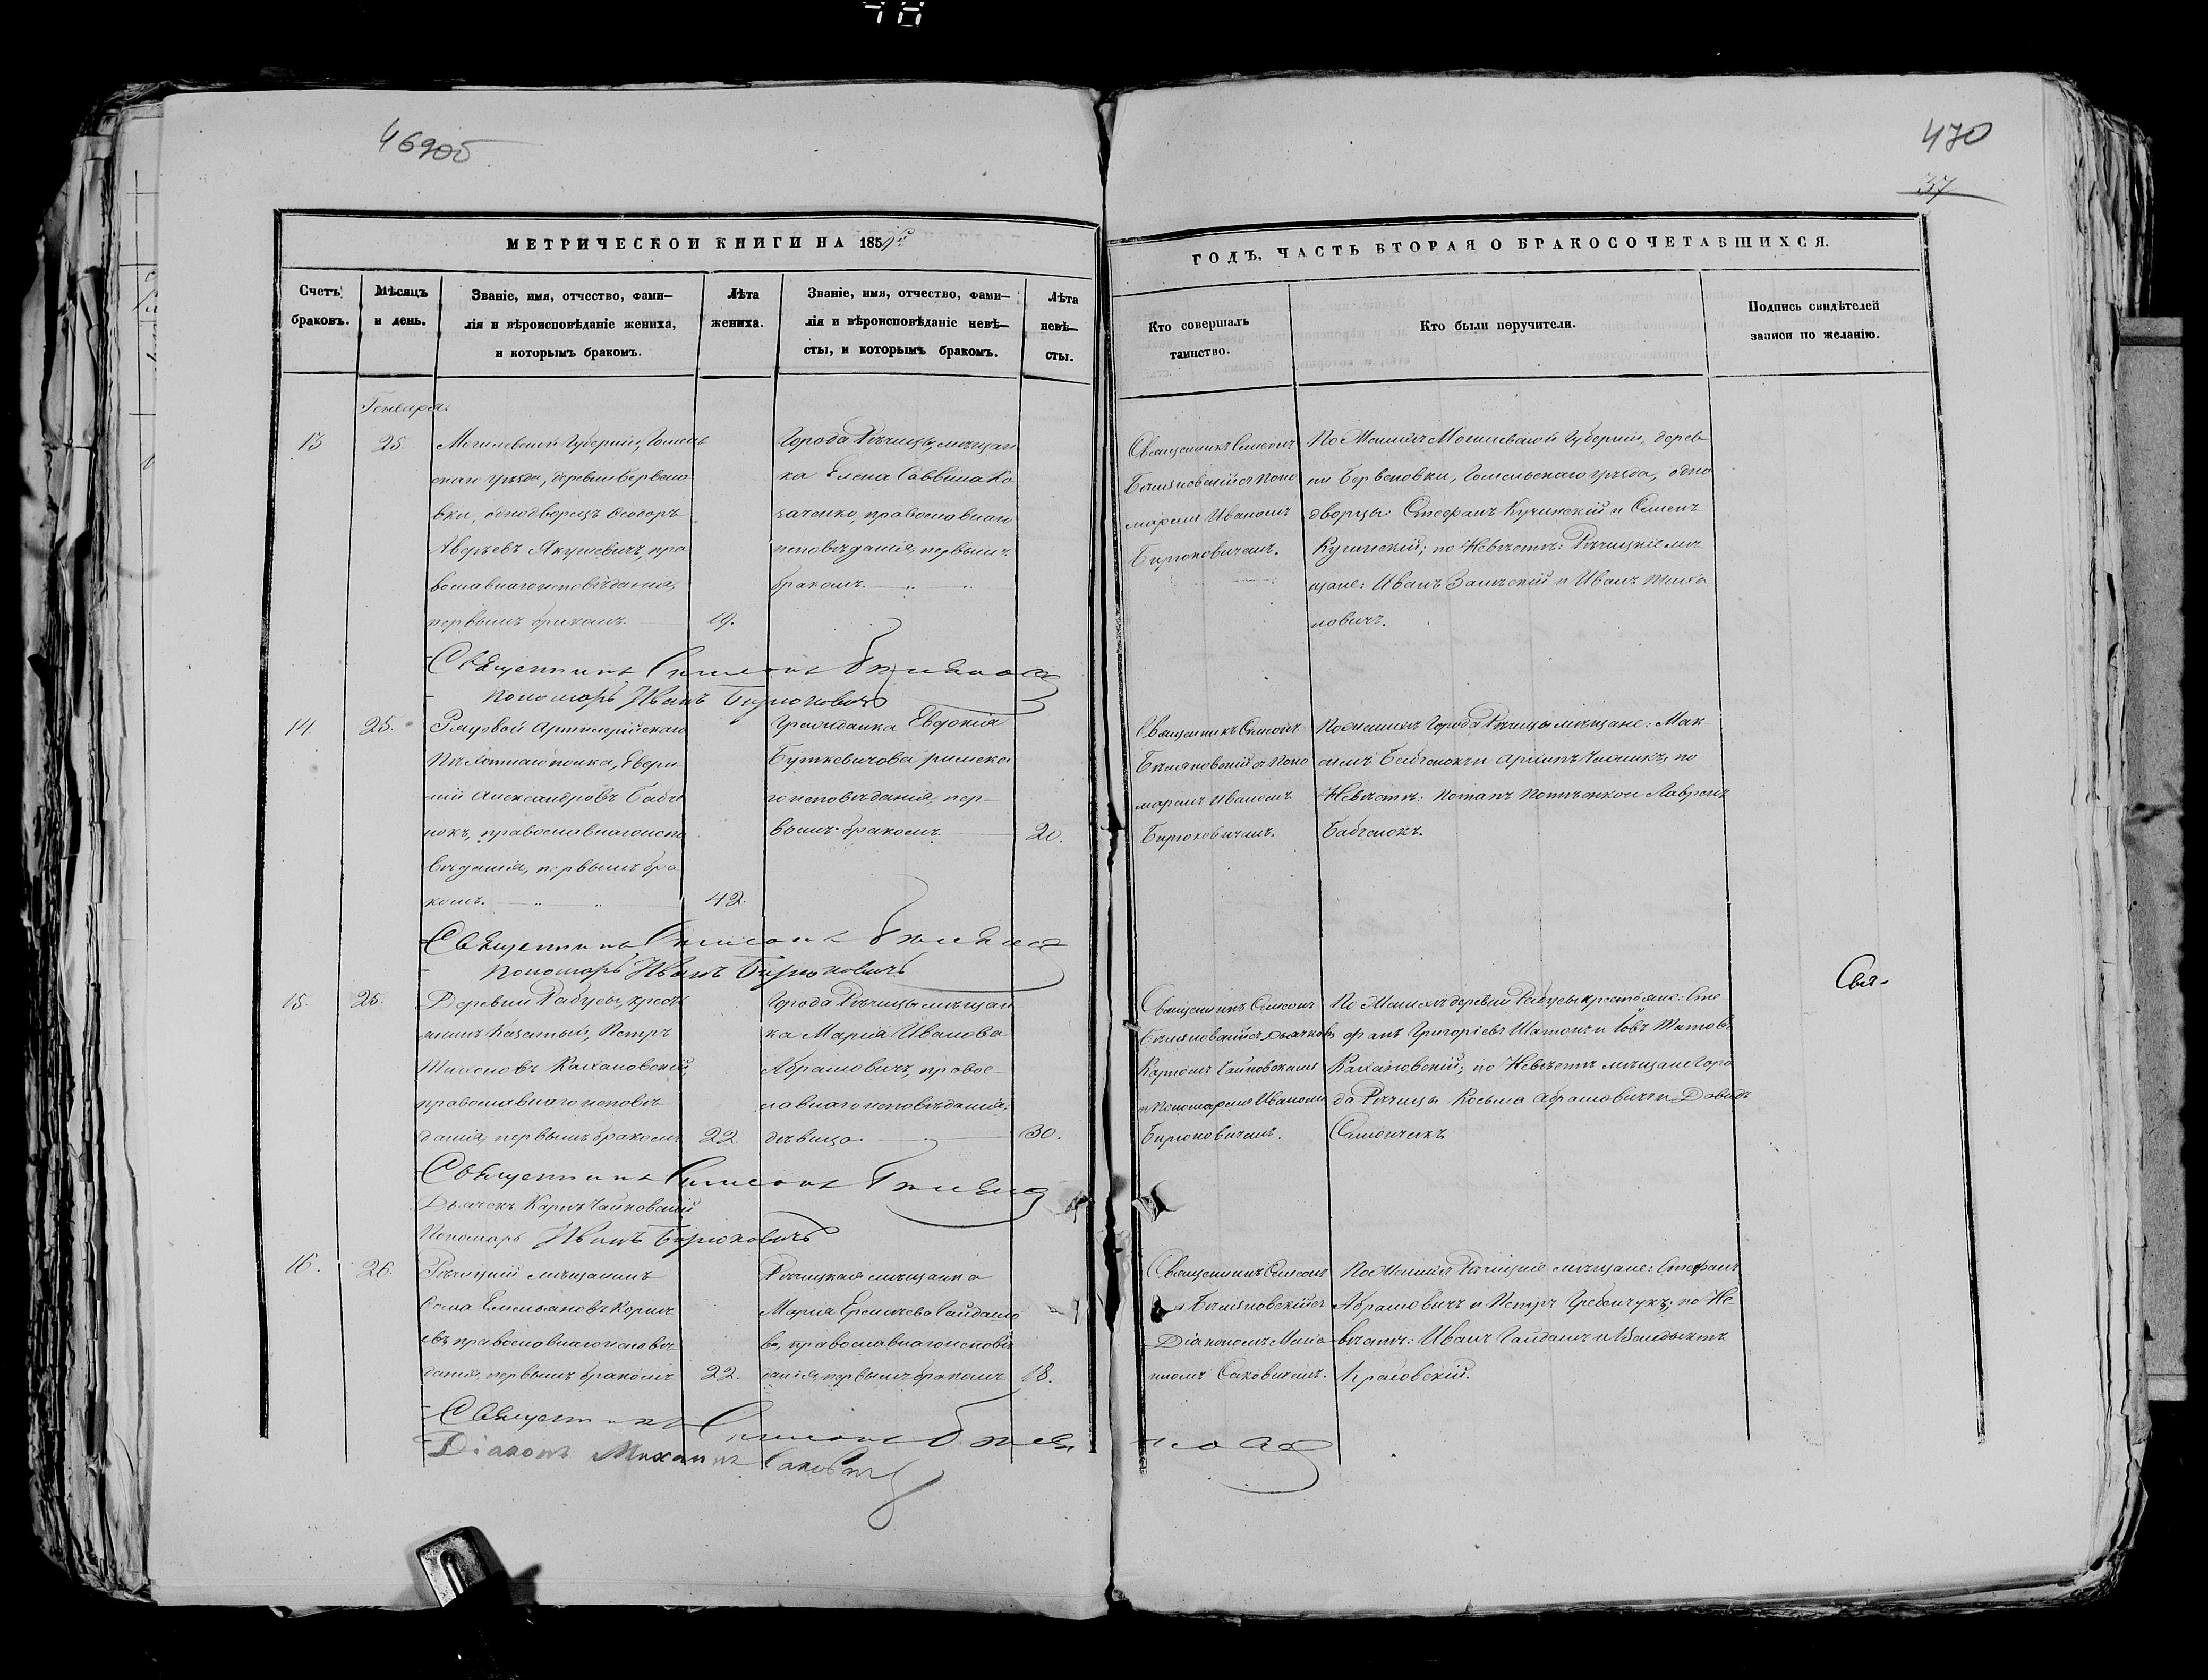 469об
470
37
МЕТРИЧЕСКОЙ КНИГИ НА 1859й
ГОДЪ, ЧАСТЬ ВТОРАЯ О БРАКОСОЧЕТАВШИХСЯ.
Счетъ
браковъ.
Мѣсяцъ
и день.
Званіе, имя, отчество, фами–
лія и вѣроисповѣданіе жениха,
и которымъ бракомъ.
Лѣта
жениха.
Званіе, имя, отчество, фами–
лія и вѣроисповѣданіе невѣ–
сты, и которымъ бракомъ.
Лѣта
невѣ–
сты.
Кто совершалъ
таинство.
Кто были поручители.
Подпись свидѣтелей
записи по желанію.
Генваря.
13
25.
Могилевской Губерніи, Гомель
скаго уѣзда, деревни Бервено
вки, однодворецъ Ѳеодоръ
Авдѣевъ Якушевичъ, пра
вославнаго исповѣданія,
первымъ бракомъ.
19.
Города Рѣчицы, мѣщан
ка Елена Саввина Ко
заченко, православнаго
исповѣданія, первымъ
бракомъ.
Священникъ Симеонъ
Бѣляновскій съ Поно
маремъ Иваномъ
Бирюковичемъ.
По Женихѣ Могилевской Губерніи, дерев
ни Бервеновки, Гомельскаго уѣзда, одно
дворцы: Стефанъ Кучинскій и Семенъ
Кучинскій; по Невѣстѣ: Рѣчицкіе мѣ
щане: Иванъ Залѣскій и Иванъ Михо
ловичъ.
Священникъ Симеонъ
Пономарь Иванъ Бирюковичъ
14.
25.
Рядовой Артилерійскаго
Пѣхотнаго полка,
Александровъ Бабче
нокъ, православнаго испо
вѣданія, первымъ бра
комъ.
42.
Гражданка Евдокія
Буткевичова римска
го исповѣданія, пер–
вымъ бракомъ
20.
Священникъ Симеонъ
Бѣляновскій съ Поно
маремъ Иваномъ
Бирюковичемъ.
По Женихѣ Города Рѣчицы мѣщане: Мак
симъ Бабченокъ и по
Невѣстѣ: Потапъ и Лаврент
Бабченокъ.
Священникъ Симеонъ
Пономарь Иванъ Бирюковичъ
15.
25.
Деревни Рабусы, крестья
нинъ Казенный, Петръ
Тихоновъ Каханovскій,
православнаго исповѣ
данія, первымъ бракомъ
22.
Города Рѣчицы мѣщан
ка Марія Иванова
Абрамовичъ, правос–
лавнаго исповѣданія,
дѣвица.
30.
Священникъ Симеонъ
Бѣляновскій съ Дьячкомъ
Карпомъ Чайковскимъ
и Пономаремъ Иваномъ
Бирюковичемъ.
По Женихѣ деревни Рабусы крестьяне: Сте
фанъ Григоріевъ и Іовъ Титовъ
Кахановскій; по Невѣстѣ мѣщане Горо
да Рѣчицы Козьма Абрамовичъ и Давидъ
Симончикъ
Свя–
Священникъ Симеонъ
Дьячекъ Карпъ Чайковскій
Пономарь Иванъ Бирюковичъ
16.
26.
Рѣчицкій мѣщанинъ
Емельяновъ Корнѣ
евъ православнаго исповѣ
данія, первымъ бракомъ
22.
Рѣчицкая мѣщанка
Марія Еремѣева Гайдамо
ва, православнаго исповѣ
данія, первымъ бракомъ
18.
Священникъ Симеонъ
Бѣляновскій съ
Діакономъ Миха
иломъ Саковичемъ.
По Женихѣ Рѣчицкіе мѣщане: Стефанъ
Абрамовичъ и Петръ Гребенчукъ; по Не
вѣстѣ: Иванъ Гайдамъ и Венедыктъ
Красовскій.
Священникъ Симеонъ
Діаконъ Михаилъ Саковичъ